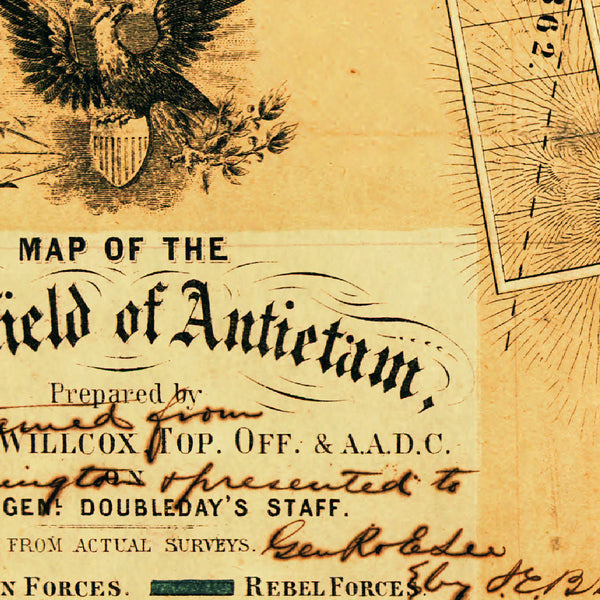 862.
MAP OF THE
ield of Antietam,
Prepared by
amed from
WILLCOX TOP. OFF. & A.A.D.C.
ON
ington & presented to
GEN: DOUBLEDAY'S STAFF.
FROM ACTUAL SURVEYS.
Gen Ro E Lee
N FORCES. REBEL FORCES.
by J. E. B.